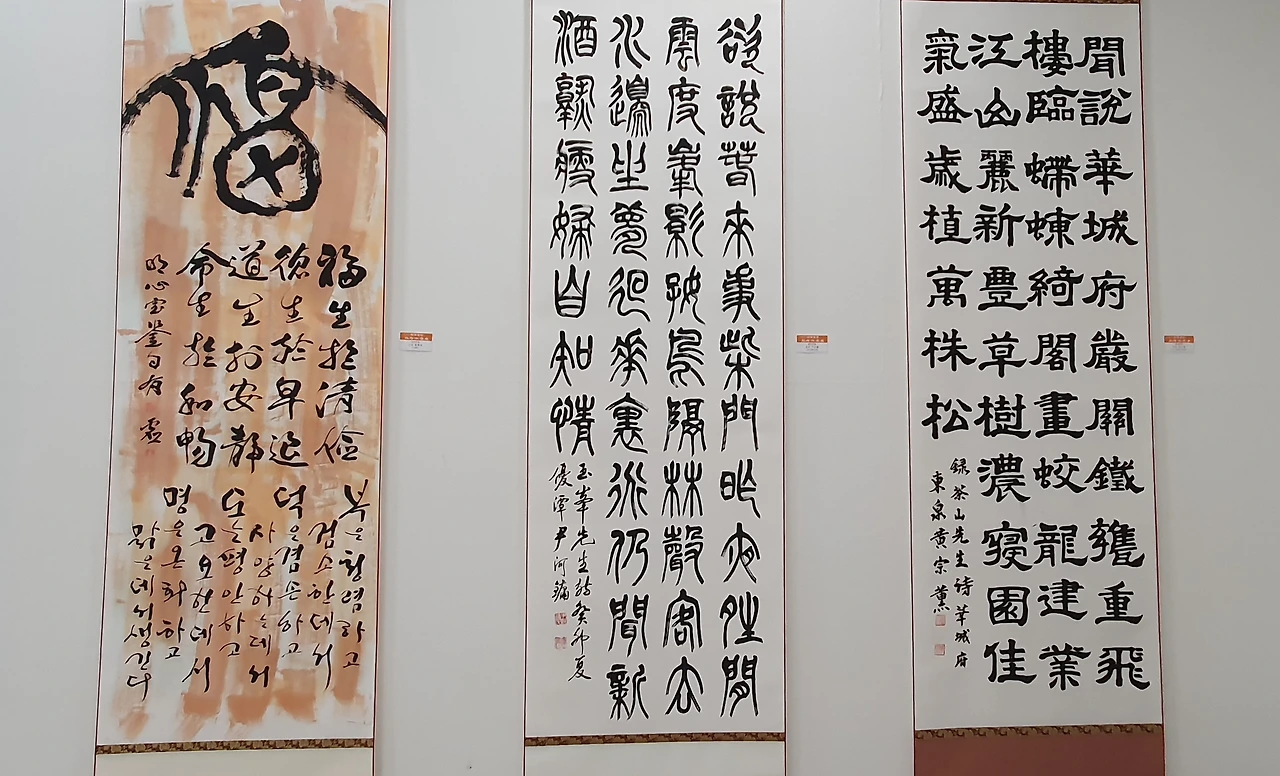 聞說華城府嚴關鐵甕重飛
樓臨螮蝀綺閣畫蛟龍建業
江山麗新豊草樹濃寢園佳
氣盛歲植萬株松
錄茶山先生詩華城府
東泉黃宗薰
欲說春來事柴門昨夜晴閒
雲度峯影好鳥隔林聲客去
水邊坐夢廻花裏行仍聞新
酒熟瘦婦自知情
玉峯先生詩癸卯夏
優潭尹河鏞
福
福生於淸儉
德生於卑退
道生於安靜
命生於和暢
明心寶鑑句 有虛
복은 청렴하고
검소한데서
덕은 겸손하고
사양하는데서
도는 평안하고
고요한데서
명은 온화하고
맑은데서 생긴다